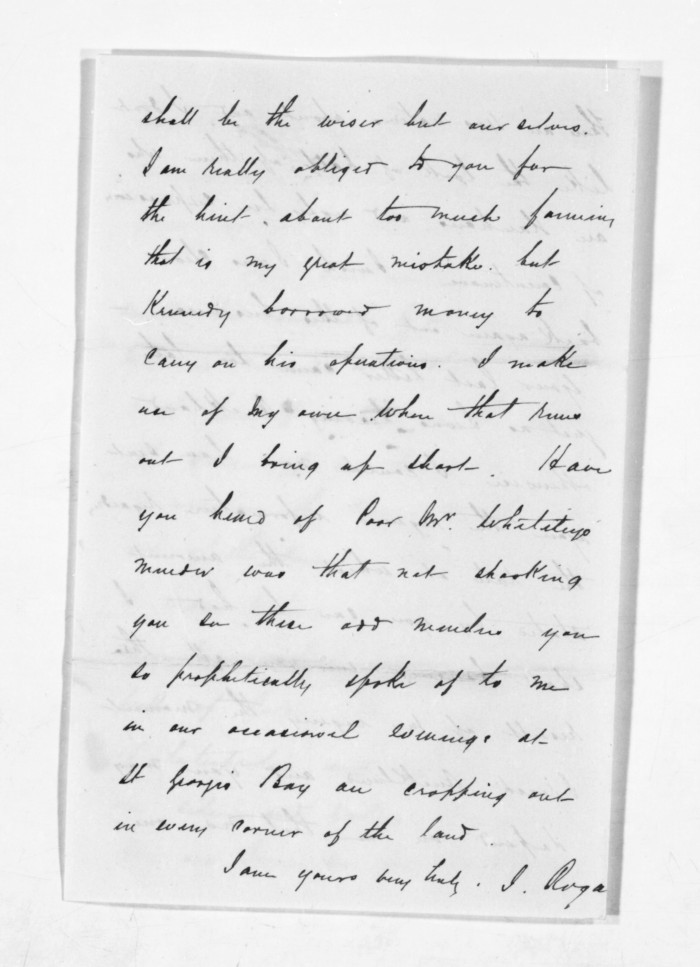 shall be the wiser but ourselves.
I am really obliged to you for
the hint. about too much farming
that is my great mistake. but
Kennedy borrowed money to
carry on his operations. I make
use of my own when that runs
out I bring up short. Have
you heard of Poor Mr. Whiteley's
murder was that not shocking
you see these odd murders you
so prophetically spoke of to me
in our occasional evenings at
St Georges Bay are cropping out
in every corner of the land.
I am yours very truly. J.